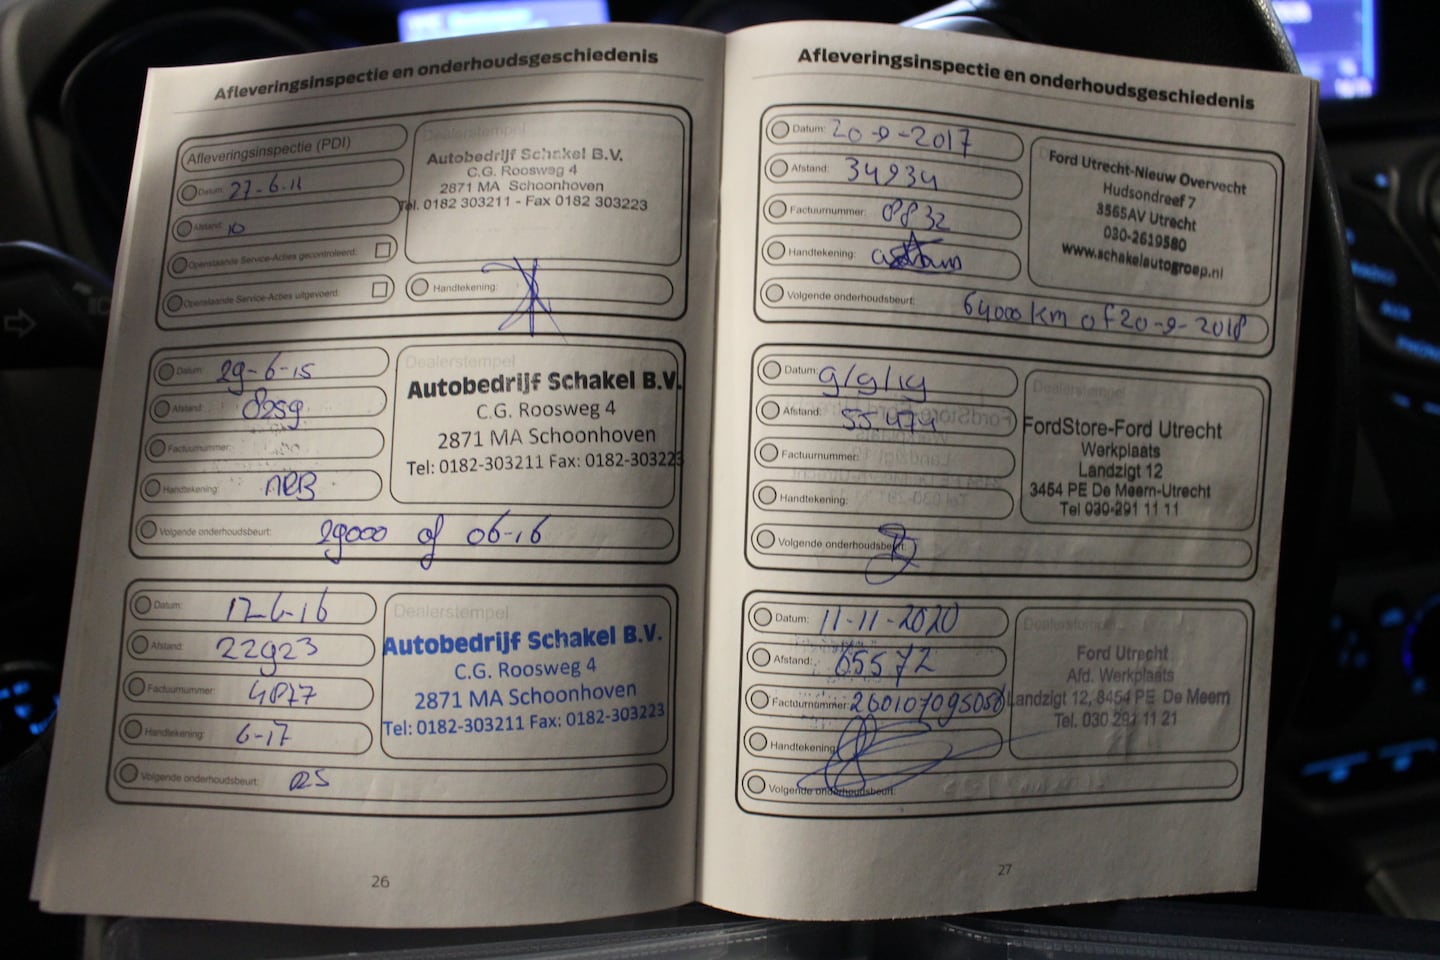 Afleveringsinspectie en onderhoudsgeschiedenis
Afleveringsinspectie (PDI)
Datum: 27-6-14
Afstand: 10
Openstaande Service-Acties gecontroleerd:
Openstaande Service-Acties uitgevoerd:
Dealerstempel
Autobedrijf Schakel B.V.
C.G. Roosweg 4
2871 MA Schoonhoven
Tel. 0182 303211 - Fax 0182 303223
Handtekening:
Datum: 29-6-15
Afstand:
Factuurnummer:
Handtekening:
Volgende onderhoudsbeurt: 29000 of 06-16
Dealerstempel
Autobedrijf Schakel B.V.
C.G. Roosweg 4
2871 MA Schoonhoven
Tel: 0182-303211 Fax: 0182-303223
Datum: 17-6-16
Afstand: 22923
Factuurnummer: 4877
Handtekening: 6-17
Volgende onderhoudsbeurt:
Dealerstempel
Autobedrijf Schakel B.V.
C.G. Roosweg 4
2871 MA Schoonhoven
Tel: 0182-303211 Fax: 0182-303223
26
Afleveringsinspectie en onderhoudsgeschiedenis
Datum: 20-9-2017
Afstand: 34934
Factuurnummer: 8832
Handtekening:
Volgende onderhoudsbeurt: 64000 km of 20-9-2018
Ford Utrecht-Nieuw Overvecht
Hudsondreef 7
3565AV Utrecht
030-2619580
www.schakelautogroep.nl
Datum: 9/9/19
Afstand: 55.474
Factuurnummer:
Handtekening:
Volgende onderhoudsbeurt:
Dealerstempel
FordStore-Ford Utrecht
Werkplaats
Landzigt 12
3454 PE De Meern-Utrecht
Tel 030-291 11 11
Datum: 11-11-2020
Afstand: 65572
Factuurnummer: 260107095058
Handtekening:
Volgende onderhoudsbeurt:
Dealerstempel
Ford Utrecht
Afd. Werkplaats
Landzigt 12, 3454 PE De Meern
Tel. 030 291 11 21
27